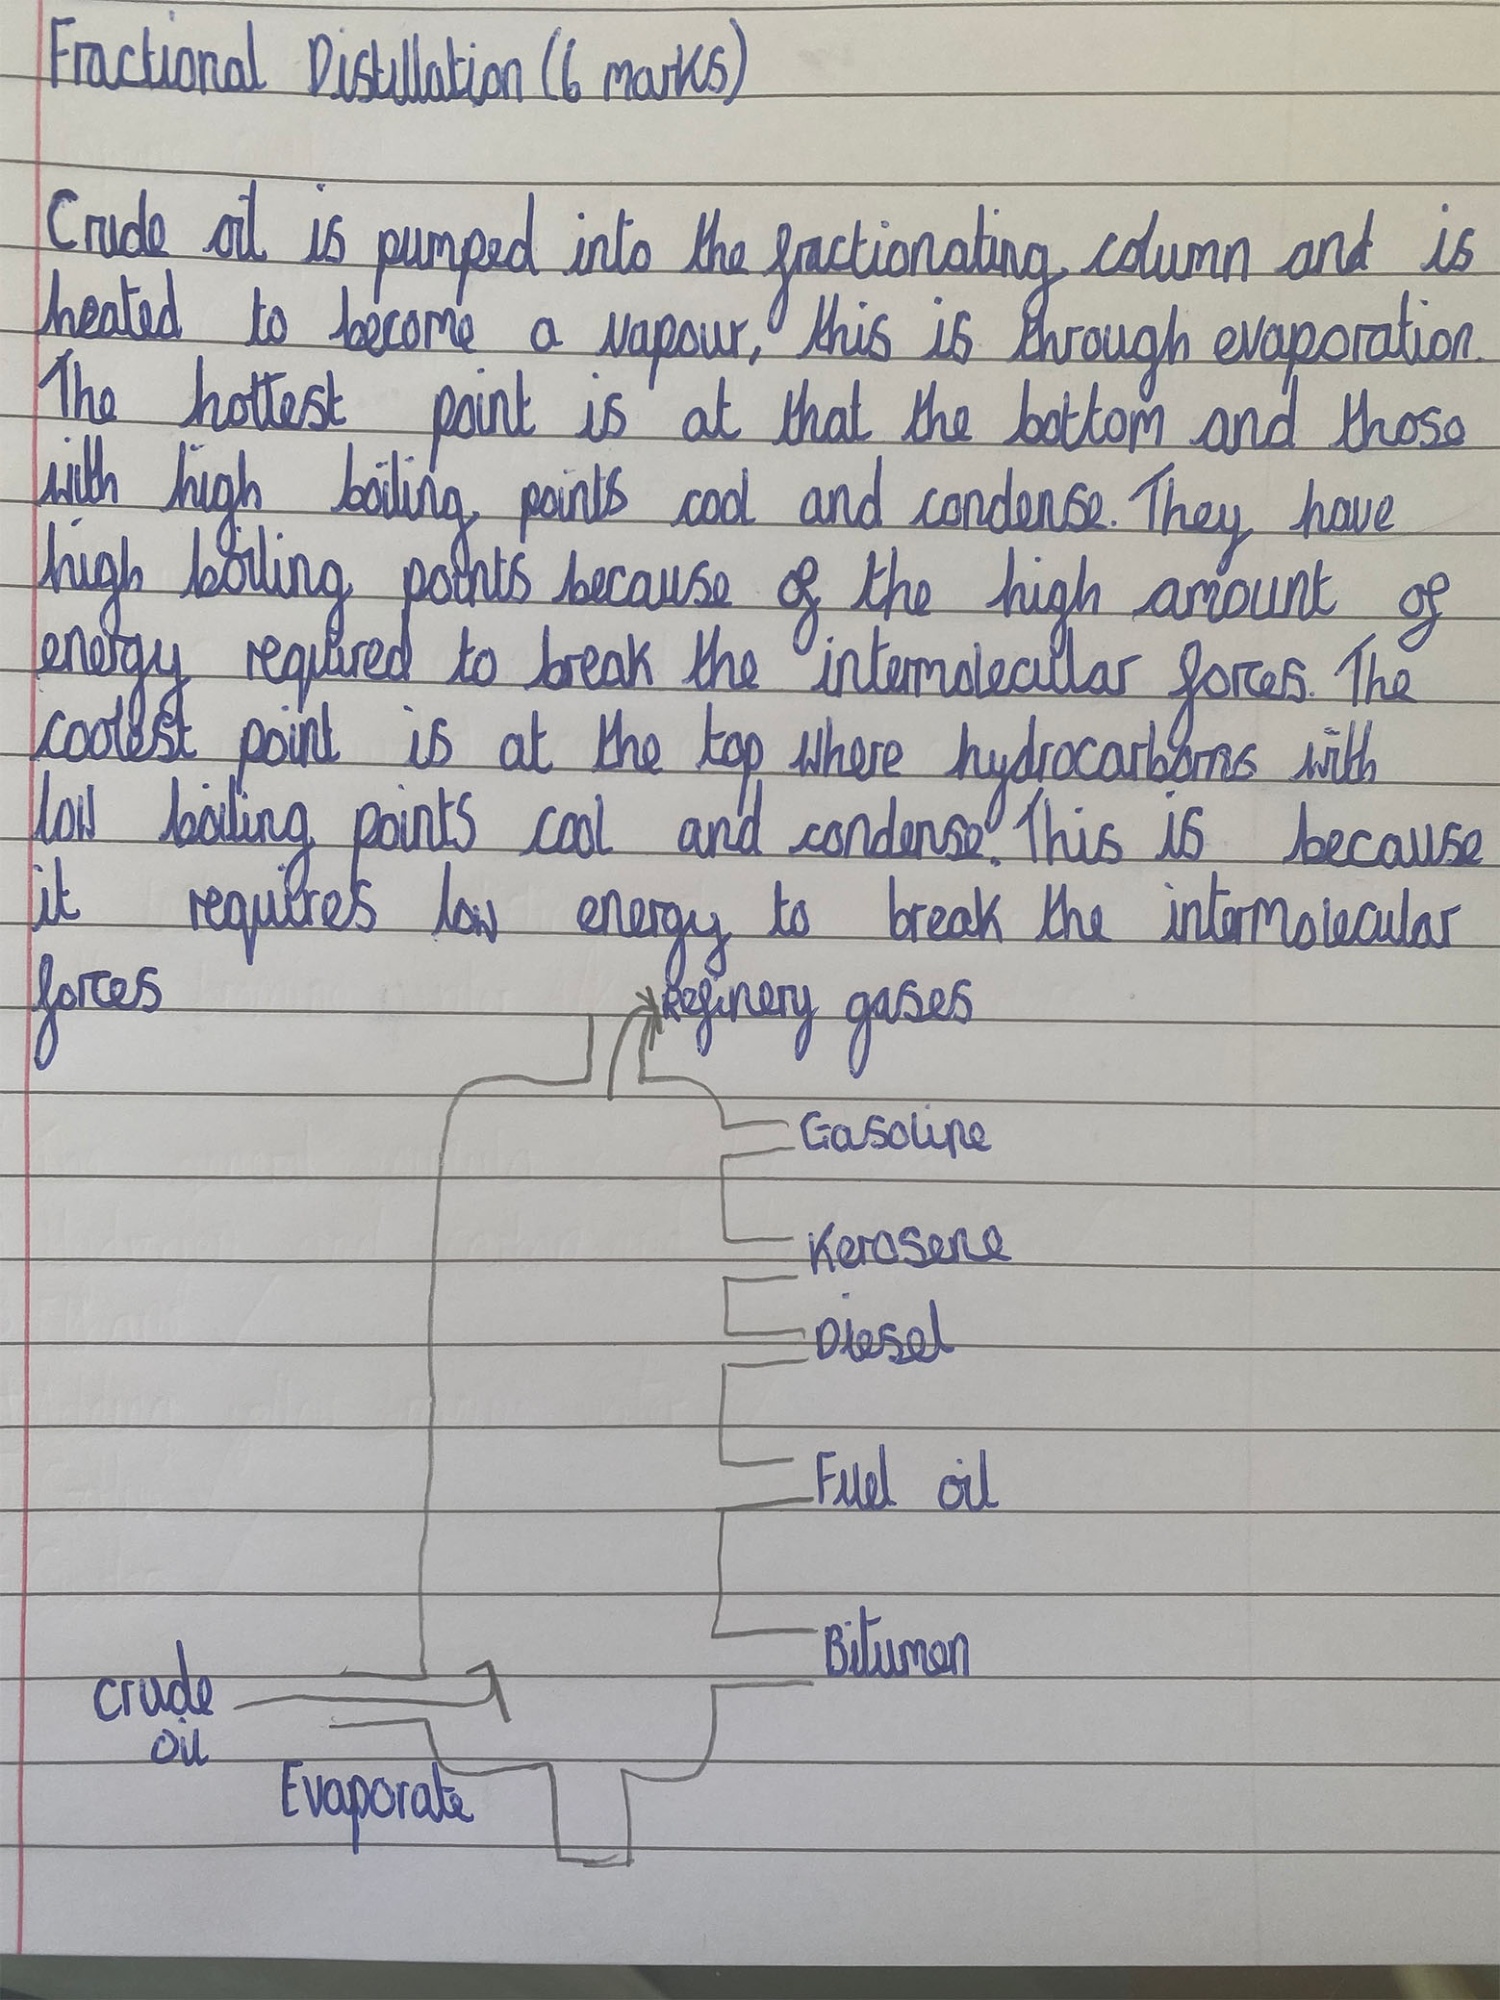 Fractional Distillation (6 marks)
Crude oil is pumped into the fractionating column and is
heated to become a vapour, this is through evaporation.
The hottest point is at that the bottom and those
with high boiling points cool and condense. They have
high boiling points because of the high amount of
energy required to break the intermolecular forces. The
coolest point is at the top where hydrocarbons with
low boiling points cool and condense. This is because
it requires low energy to break the intermolecular
forces
Refinery gases
Gasoline
Kerosene
Diesel
Fuel oil
Bitumen
crude
oil
Evaporate